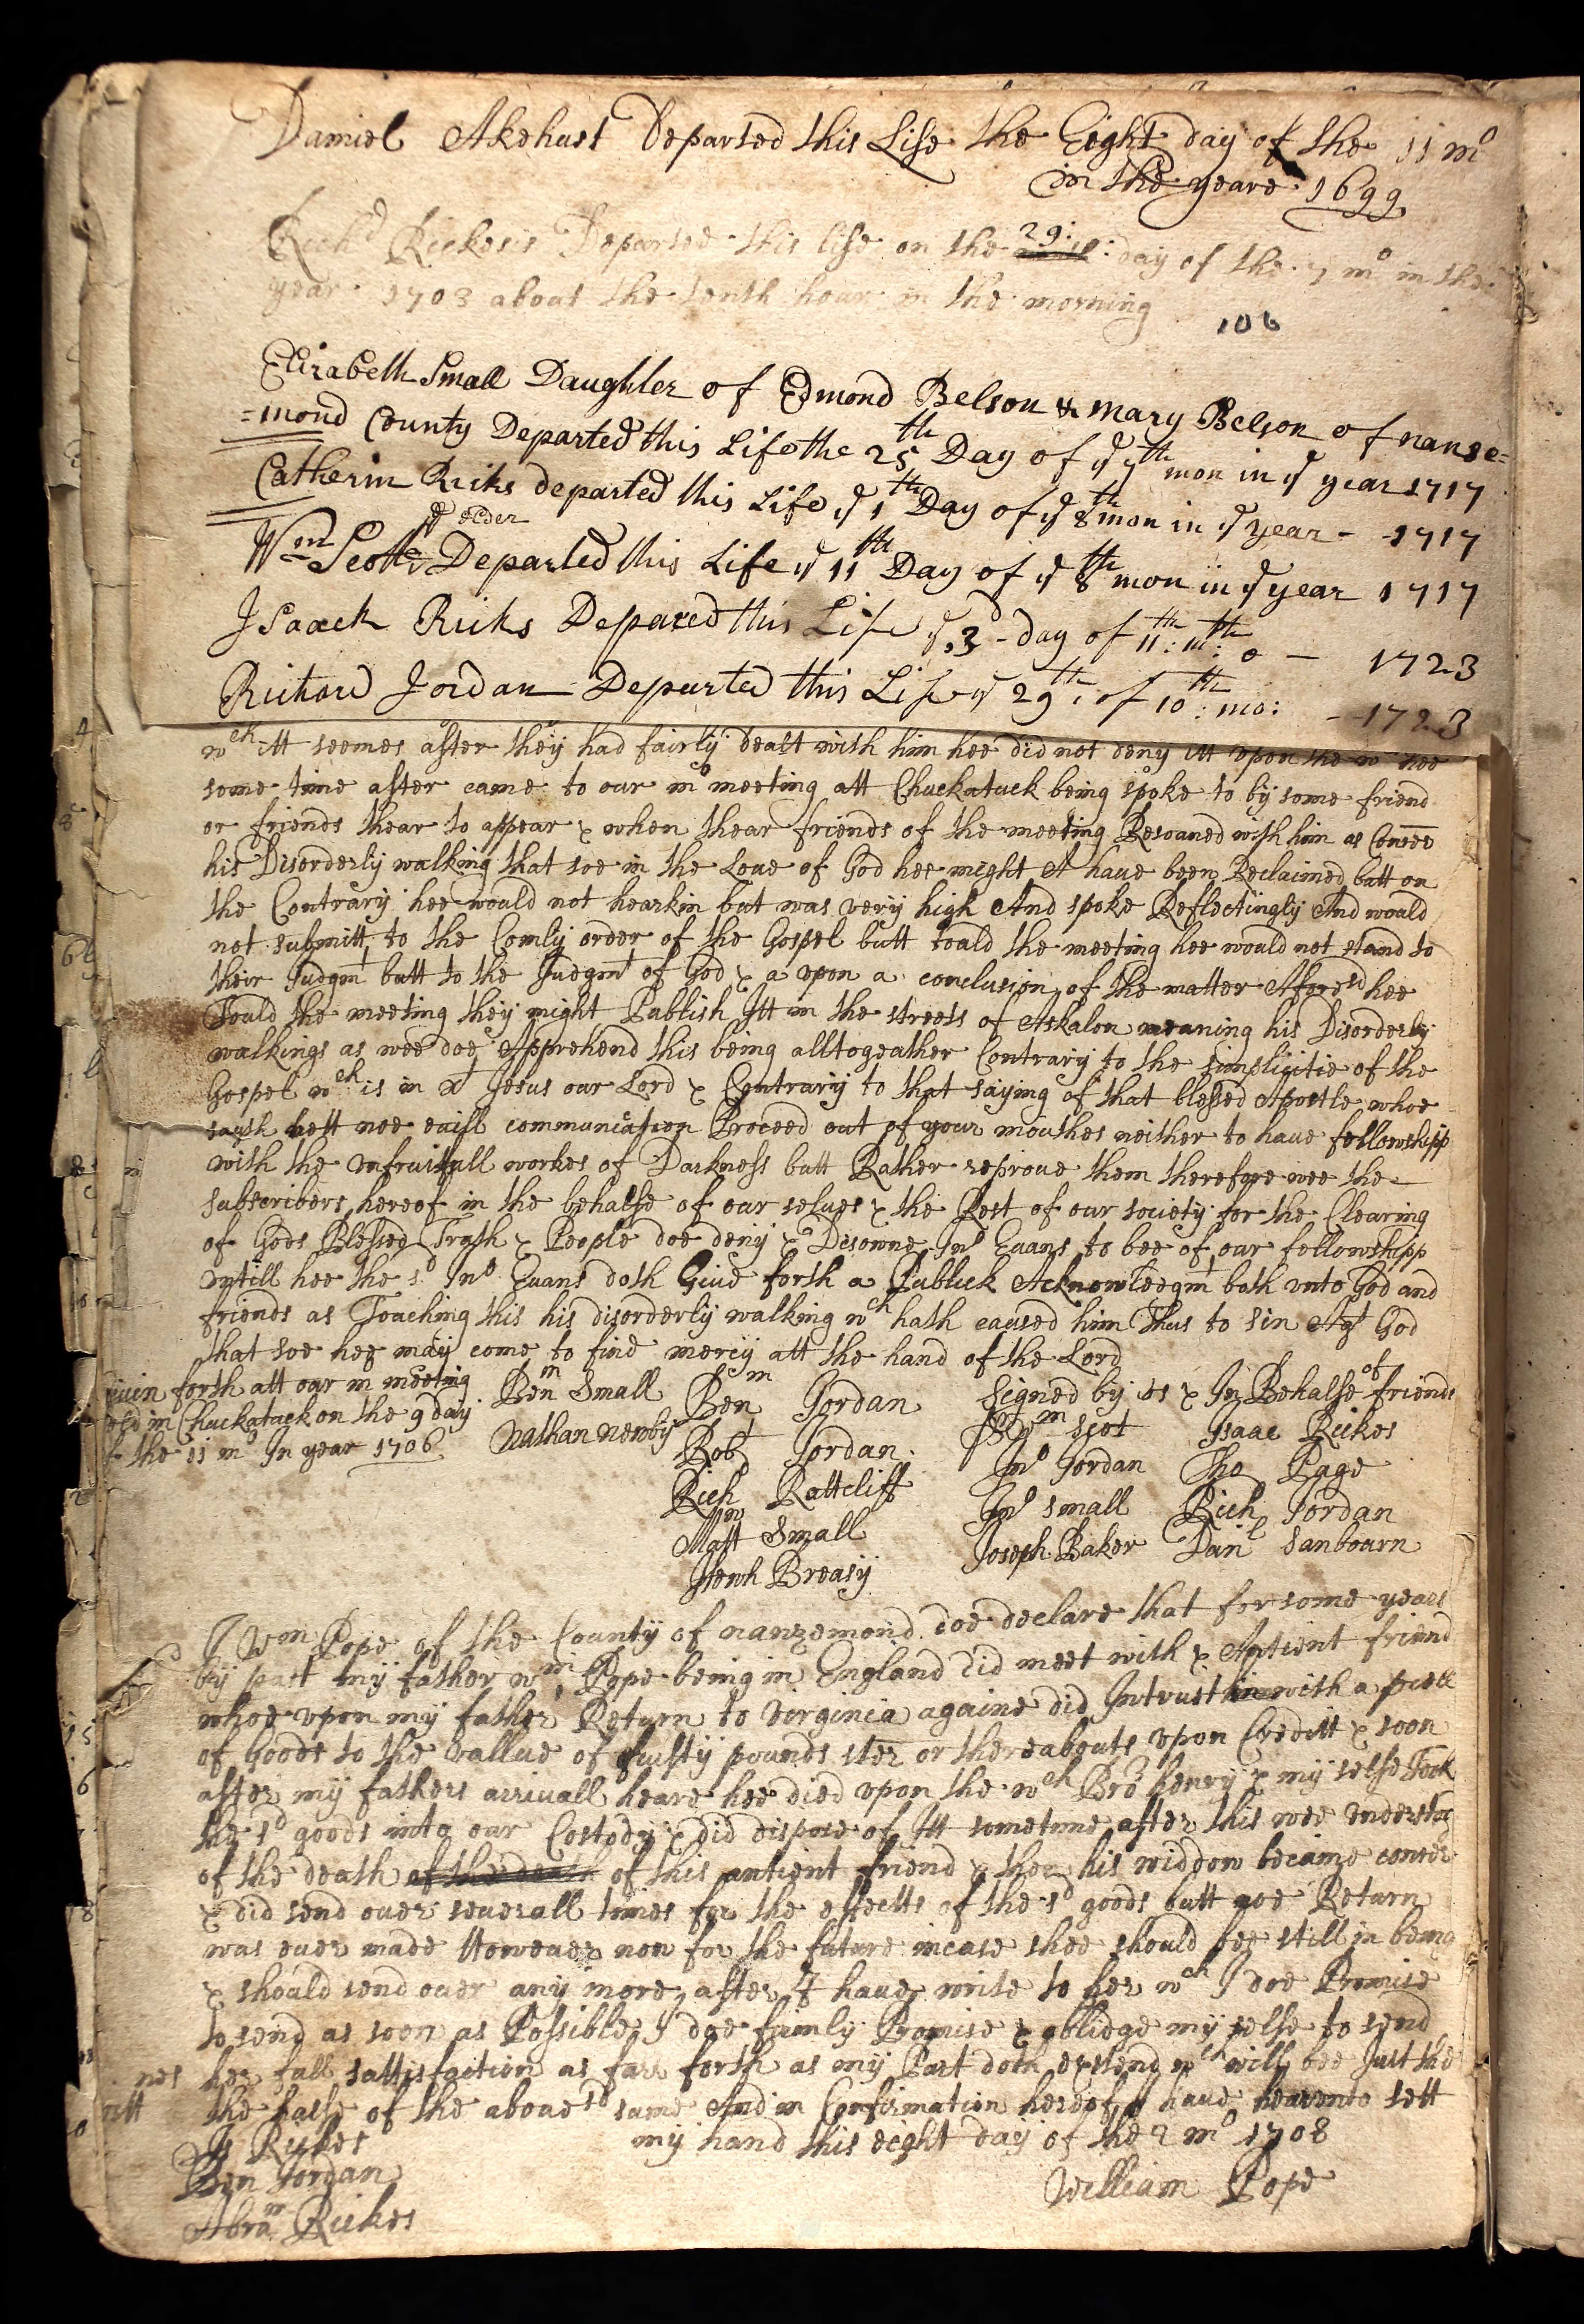 Daniel Akehurst Departed this Life the Eight day of the 11 mo
in the yeare 1699
Richd Rickesis Departed this life on the 29: day of the 7 mo in the
year 1703 about the tenth hour in the morning
106
Elizabeth Small Daughter of Edmond Belson & Mary Belson of nanse=
=mond County Departed this Life the 25th Day of ye 7th mon in ye year 1717
Catherin Ricks departed this Life ye 1th Day of ye 8th mon in ye year - 1717
ye older
Wm Scott Departed this Life ye 11th Day of ye 8th mon in ye year 1717
Isaack Ricks Depared this Life ye 3d day of 11th: mth: o — 1723
Richard Jordan Departed this Life ye 29th of 10th: mo: - 1723
wch itt seemes after they had fairly dealt with him hee did not deny itt upon the wch hee
some time after came to our mo meeting att Chuckatuck being spoke to by some friend
or friends thear to appear & when thear friends of the meeting Resoaned with him as Conser
his Disorderly walking that soe in the Loue of God hee might have been Reclaimed butt on
the Contrary hee would not hearkin but was very high And spoke Reflectingly And would
not submitt to the Comly order of the Gospel butt toald the meeting hee would not stand to
their Judgmt butt to the Judgmt of God & a upon a conclusion of the matter Aforesd hee
Tould the meeting they might Publish Itt in the streets of Askalon meaning his Disorderly
walkings as wee doe Apprehend this being alltogeather Contrary to the simplicitie of the
Gospel wch is in xt Jesus our Lord & Contrary to that saying of that blessed Apostle whoe
sayth lett noe euill communication Proceed out of your mouthes neither to have fellowshipp
with the unfruitfull workes of Darkness butt Rather reproue them therefore wee the
subscribers hereof in the behalfe of our selues & the Rest of our society for the Clearing
of Gods Blessed Truth & People doe deny & Disowne Jno Euans to bee of our fellowshipp
untill hee the sd Jno Euans doth Giue forth a Publick Acknowledgmt both unto God and
friends as Touching this his disorderly walking wch hath caused him Thus to sin Agt God
that soe hee may come to find mercy att the hand of the Lord
giuen forth att our m meeting Benm Small Benm Jordan Signed by us & In Behalfe of friends
in Chuckatuck on the 9 day Nathan Newby Robt Jordan Wm Scot Isaac Rickes
the 11 mo In year 1706 Jno Jordan Tho Page
Richd Rattcliff Jno Small Rich Jordan
Matt Small Joseph Baker Danl Sanbourn
Breasy
I Wm Pope of the County of nanzemond doe declare that for some years
by past my father wm Pope being in England did meet with & Antient friend
whoe upon my father Return to Virginia againe did Intrust him with a
of Goods to the vallue of fuifty pounds ster or thereabouts upon Creditt & soon
after my fathers arriuall heare hee died upon the wch Bro henry & my selfe Took
the sd goods into our Costody & did dispose of Itt sometime after this wee understood
of the death of the death of this antient friend & then his widdow became conser
& did send ouer seuerall times for the effects of the sd goods butt noe Return
was euer made Howeuer now for the future incase shee should bee still in being
& should send ouer any more, after I haue write to her wch I doe Promise
to send as soon as Possible, I doe firmly Promise & oblidge my selfe to send
her full sattisfaction as farr forth as my Part doth extend wch will bee Just the
the halfe of the aboue sd sume And in Confirmation hereof I haue heareunto sett
my hand this eight day of the 2 mo 1708
Is Rickes
Ben Jordan
William Pope
Abram Rickes